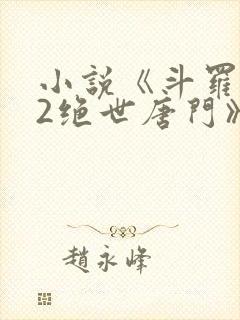 小說《斗羅
2绝世唐門》
趙永峰